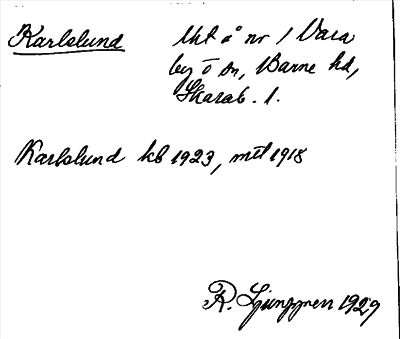 Karlslund
Utt å nr 1 Vara
by o sn, Barne hd,
Skarab. l.
Karlslund kb 1923, mtl 1918
R. Ljunggren 1929